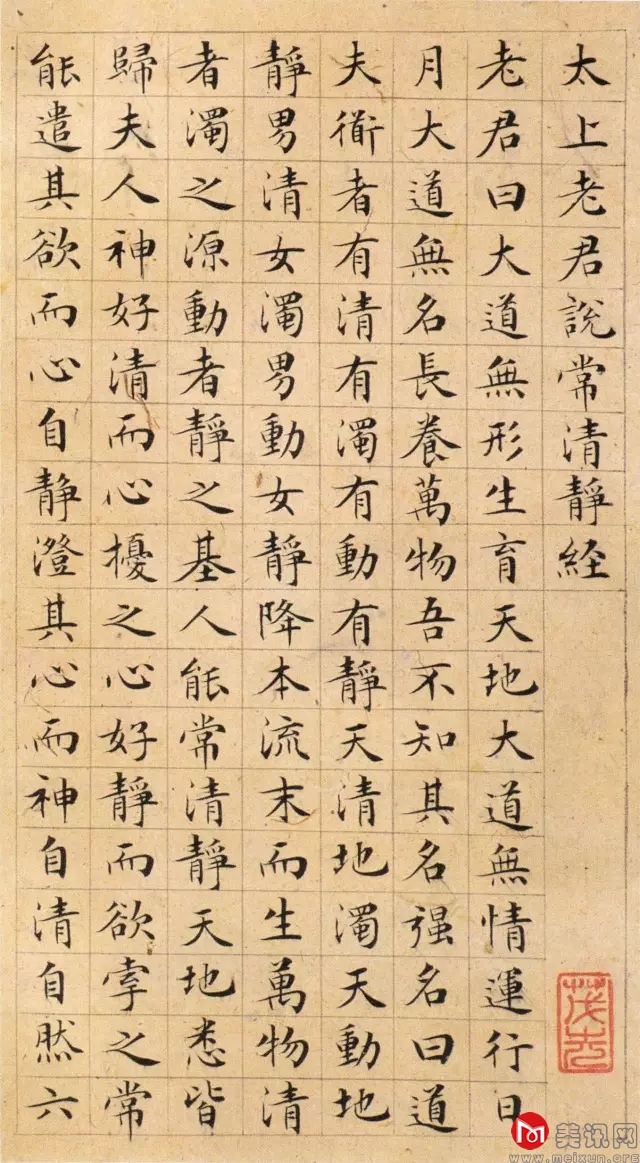 太上老君說常清靜経
老君曰大道無形生育天地大道無情運行日
月大道無名長養萬物吾不知其名强名曰道
夫衜者有清有濁有動有靜天清地濁天動地
靜男清女濁男動女靜降本流末而生萬物清
者濁之源動者靜之基人能常清靜天地悉皆
歸夫人神好清而心擾之心好靜而欲牽之常
能遣其欲而心自静澄其心而神自清自然六
美讯网
www.meixun.org